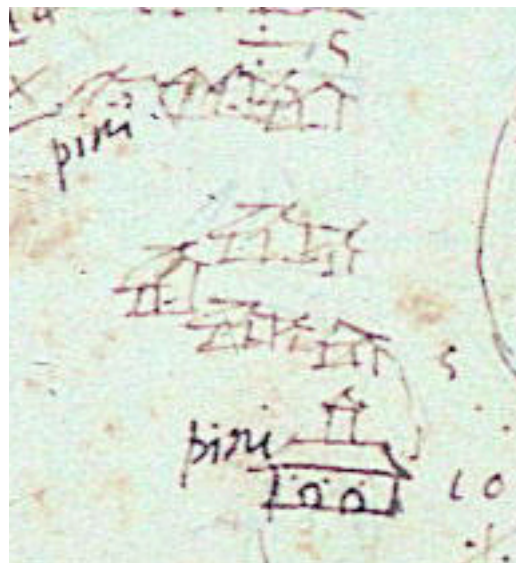 5
piri
5
piri
10